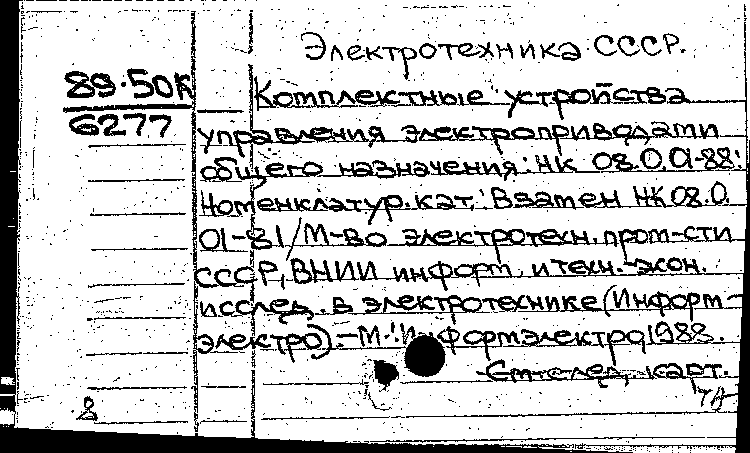 Электротехника СССР.
89-50К
6277
Комплектные устройства
управления электроприводами
общего назначения: НК 08.0.01-88:
Номенклатур. кат.: Взамен НК 08.0.
01-81/М-во электротехн. пром-сти
СССР, ВНИИ информ. и техн.-экон.
исслед. в электротехнике (Информ-
электро).-М.: Информэлектро, 1988.
-См. след. карт.
8